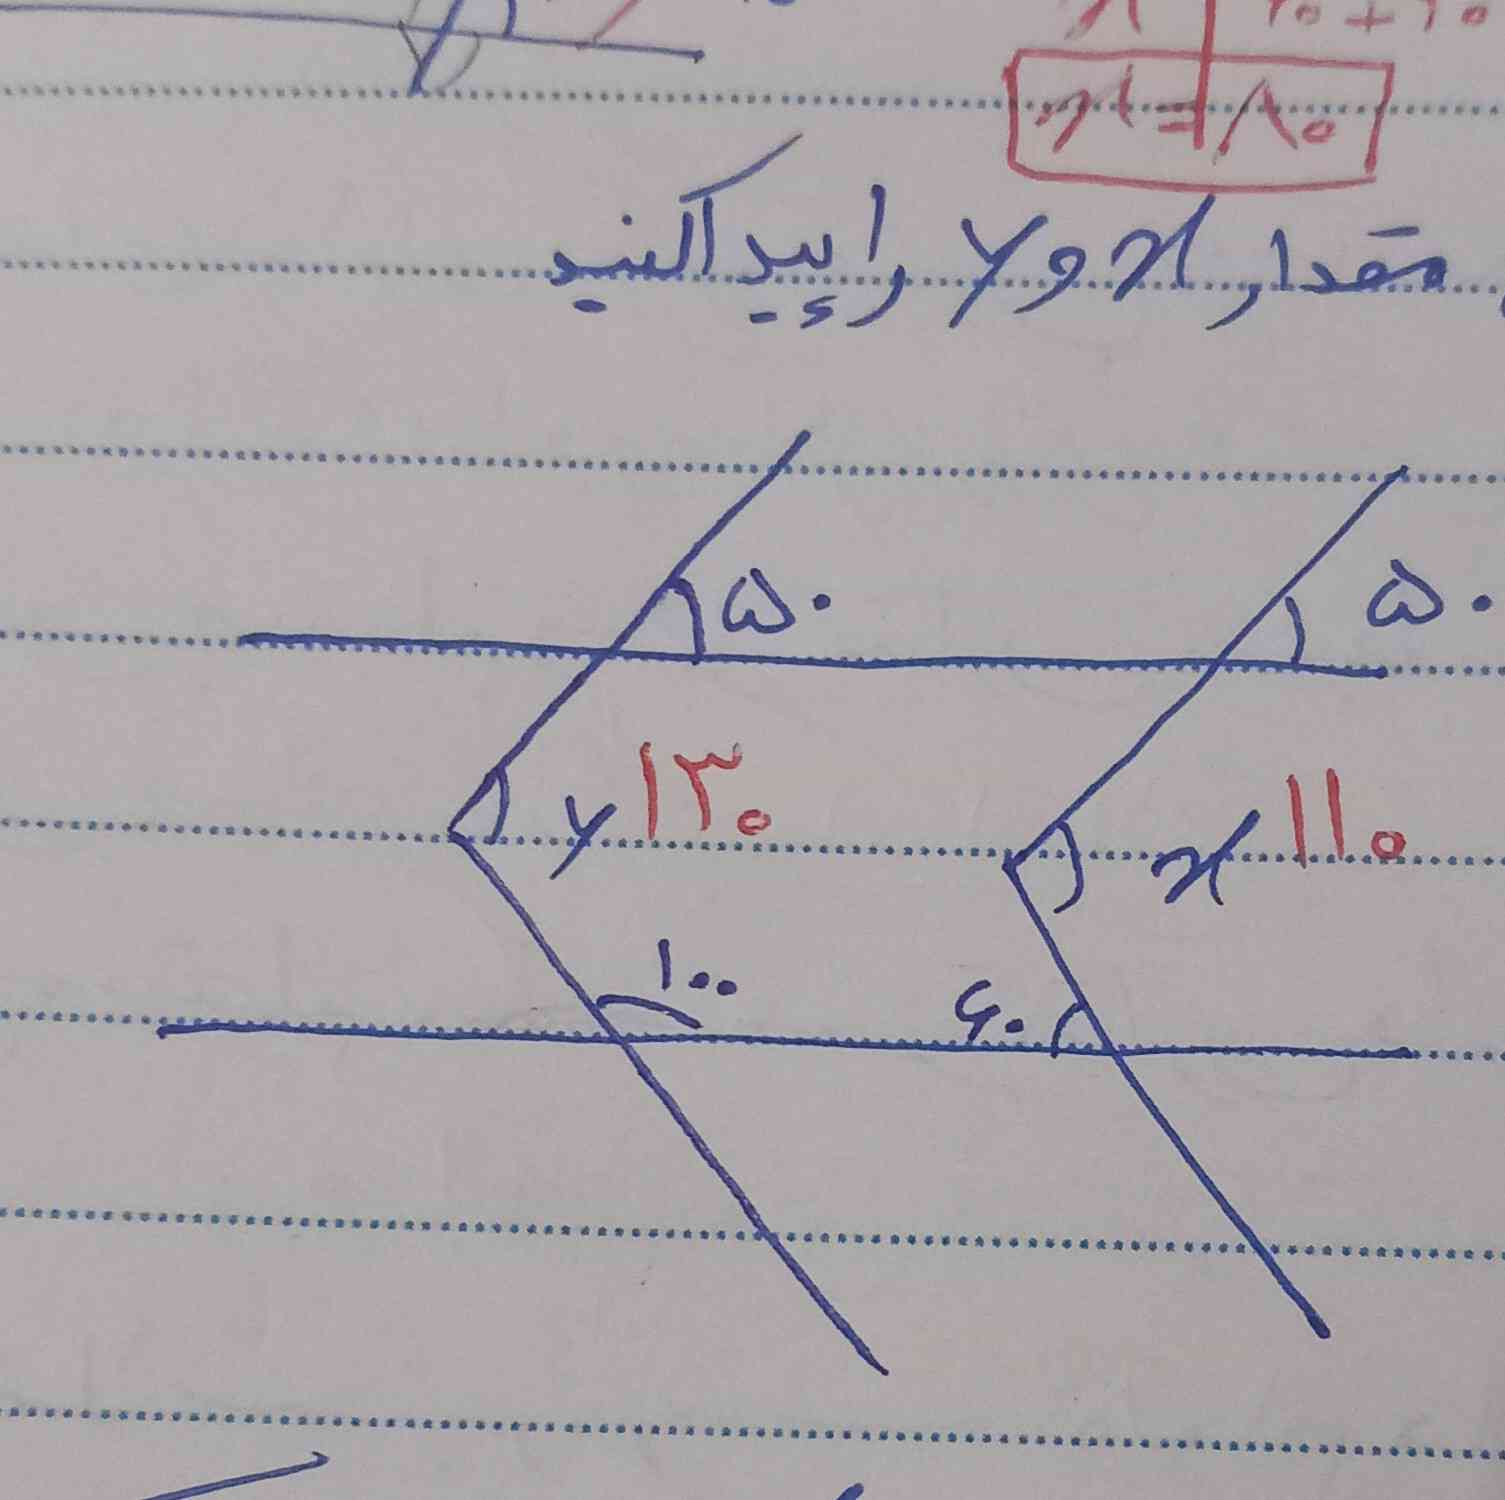 x ۲۰+۶۰
x = ۸۰
مقدار x و y را پیدا کنید
۵۰ ۵۰
y ۱۳۰ x ۱۱۰
۱۰۰ ۶۰